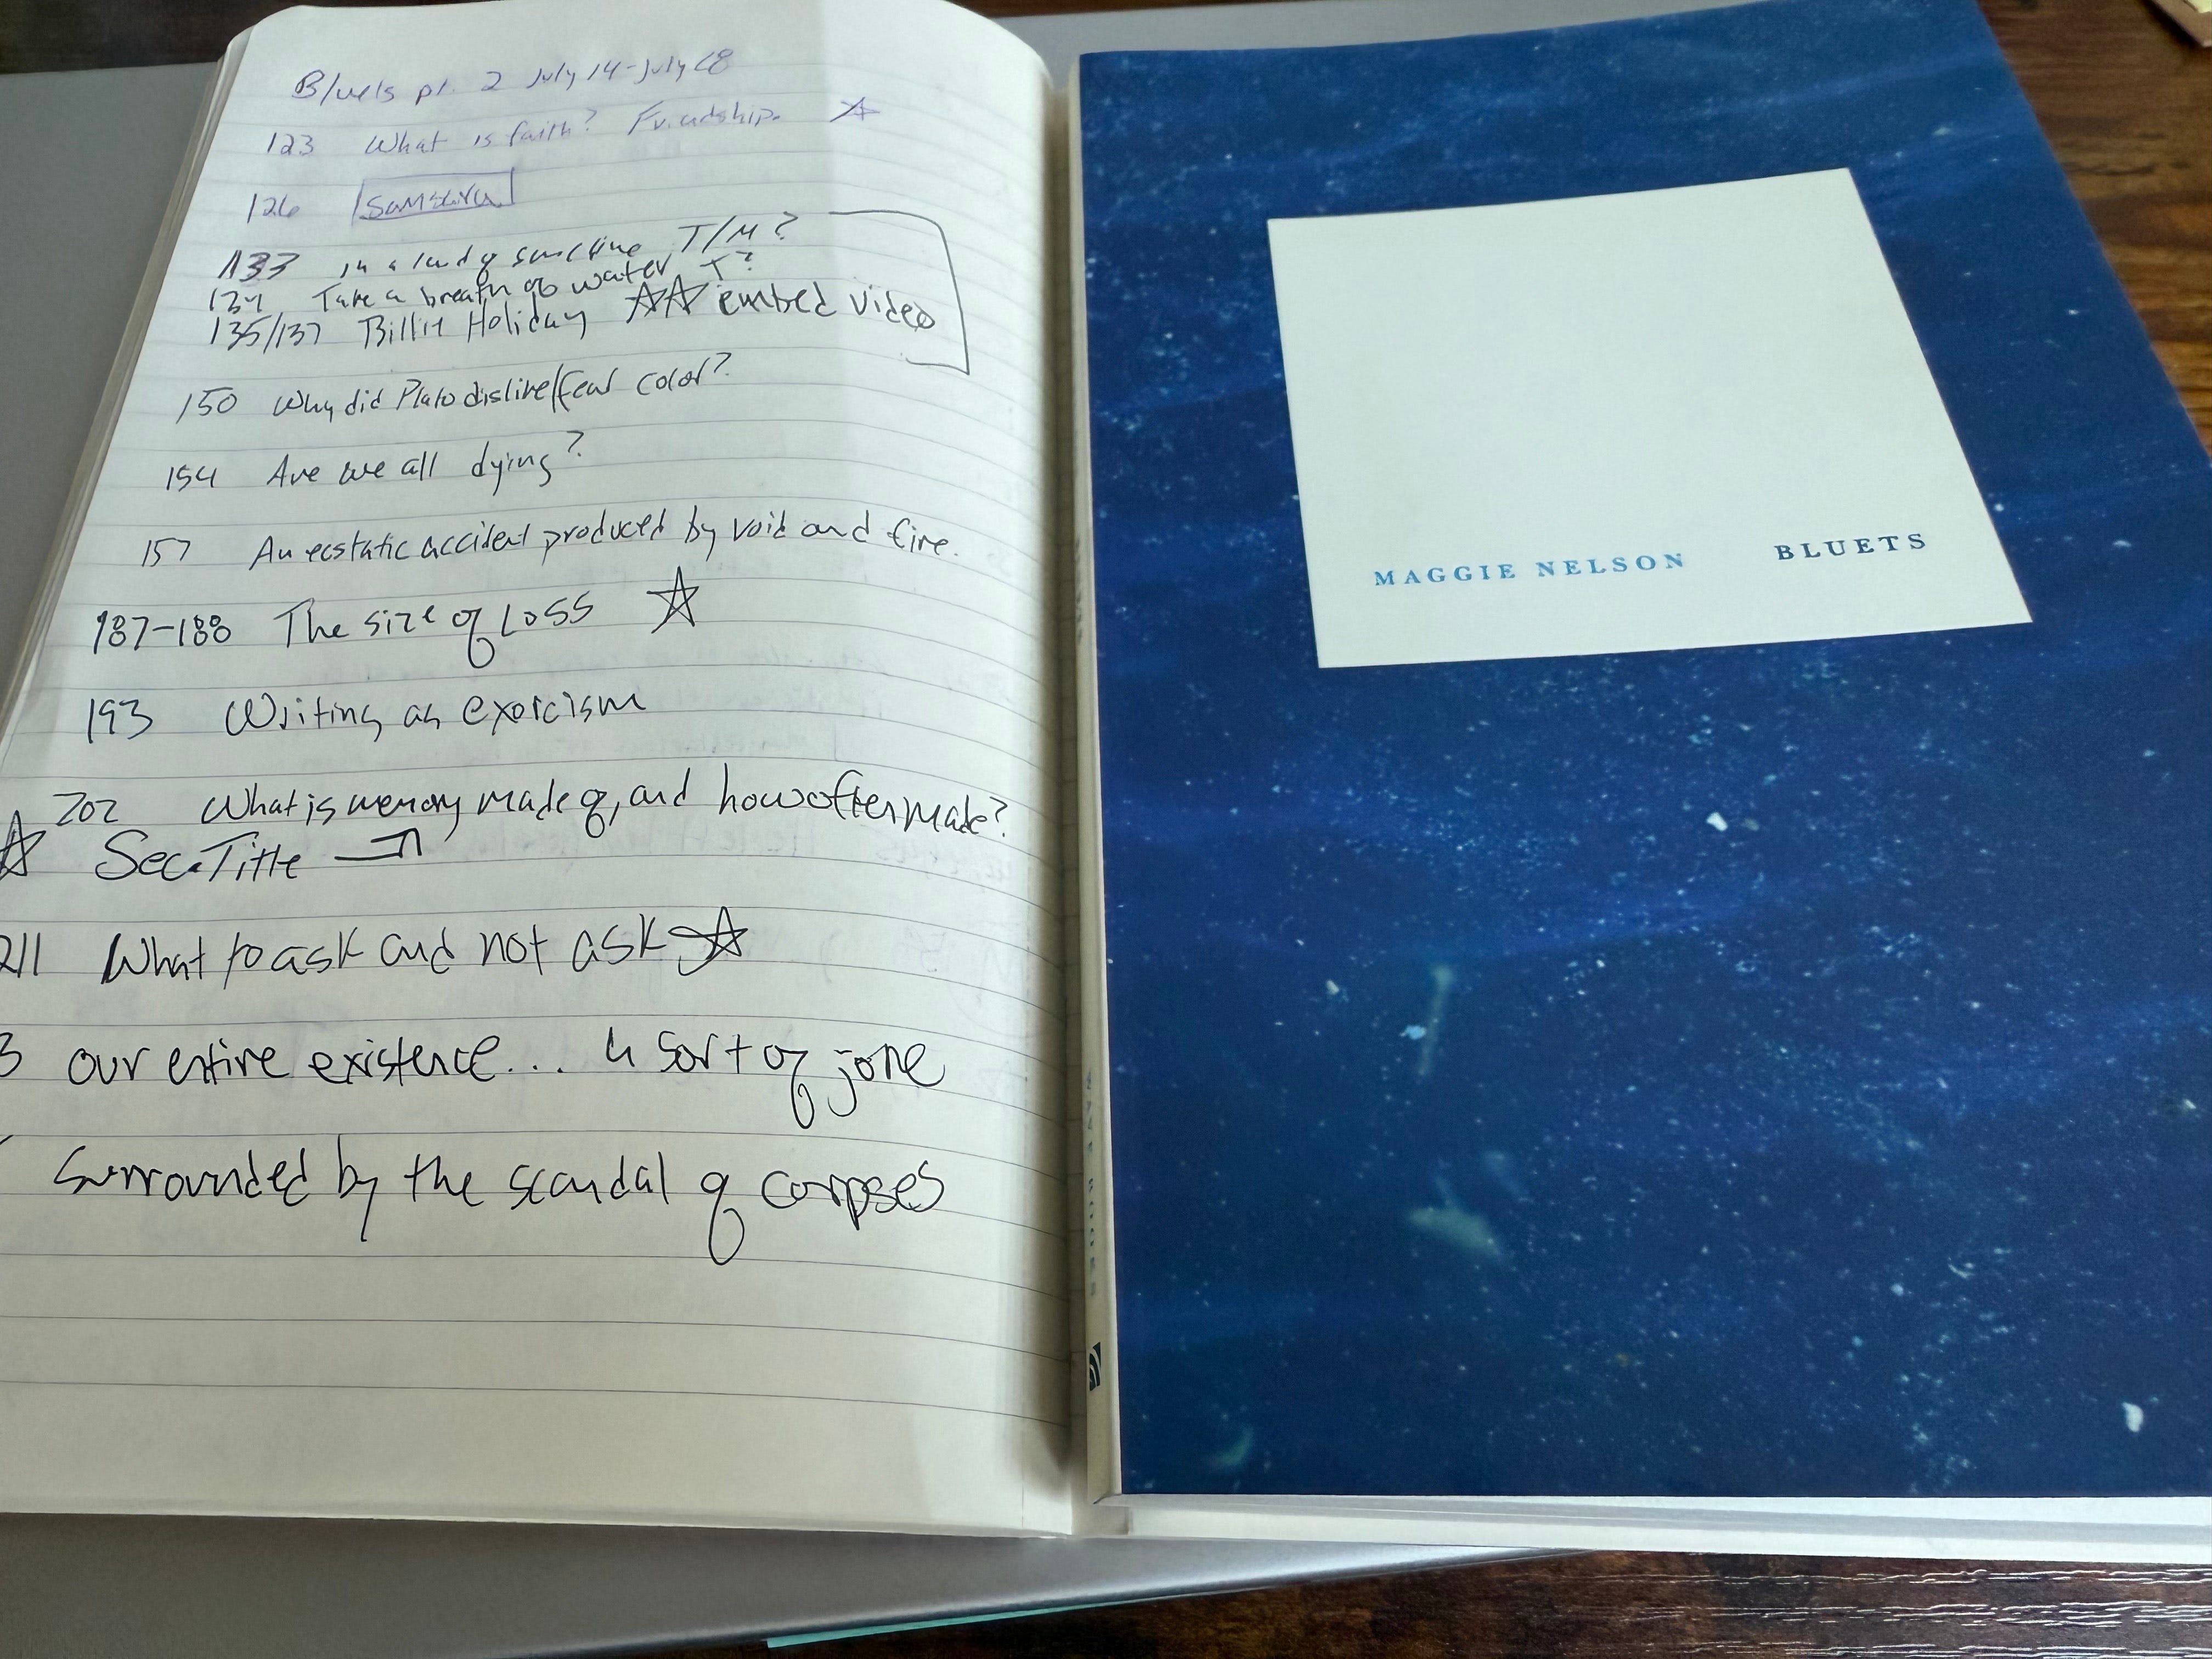 Bluets pt. 2 July 14-July 28
123 What is faith? Friendship. ☆
126 Samsara
133 in a land of sunshine T/M?
134 Take a breath of water T?
135/137 Billie Holiday ☆☆ embed video
150 Why did Plato dislike/fear color?
154 Are we all dying?
157 An ecstatic accident produced by void and fire.
187-188 The size of Loss ☆
193 Writing as exorcism
202 What is memory made of, and how often made?
☆ Sec. Title
211 What to ask and not ask ☆
3 our entire existence... a sort of joke
Surrounded by the scandal of corpses
MAGGIE NELSON BLUETS